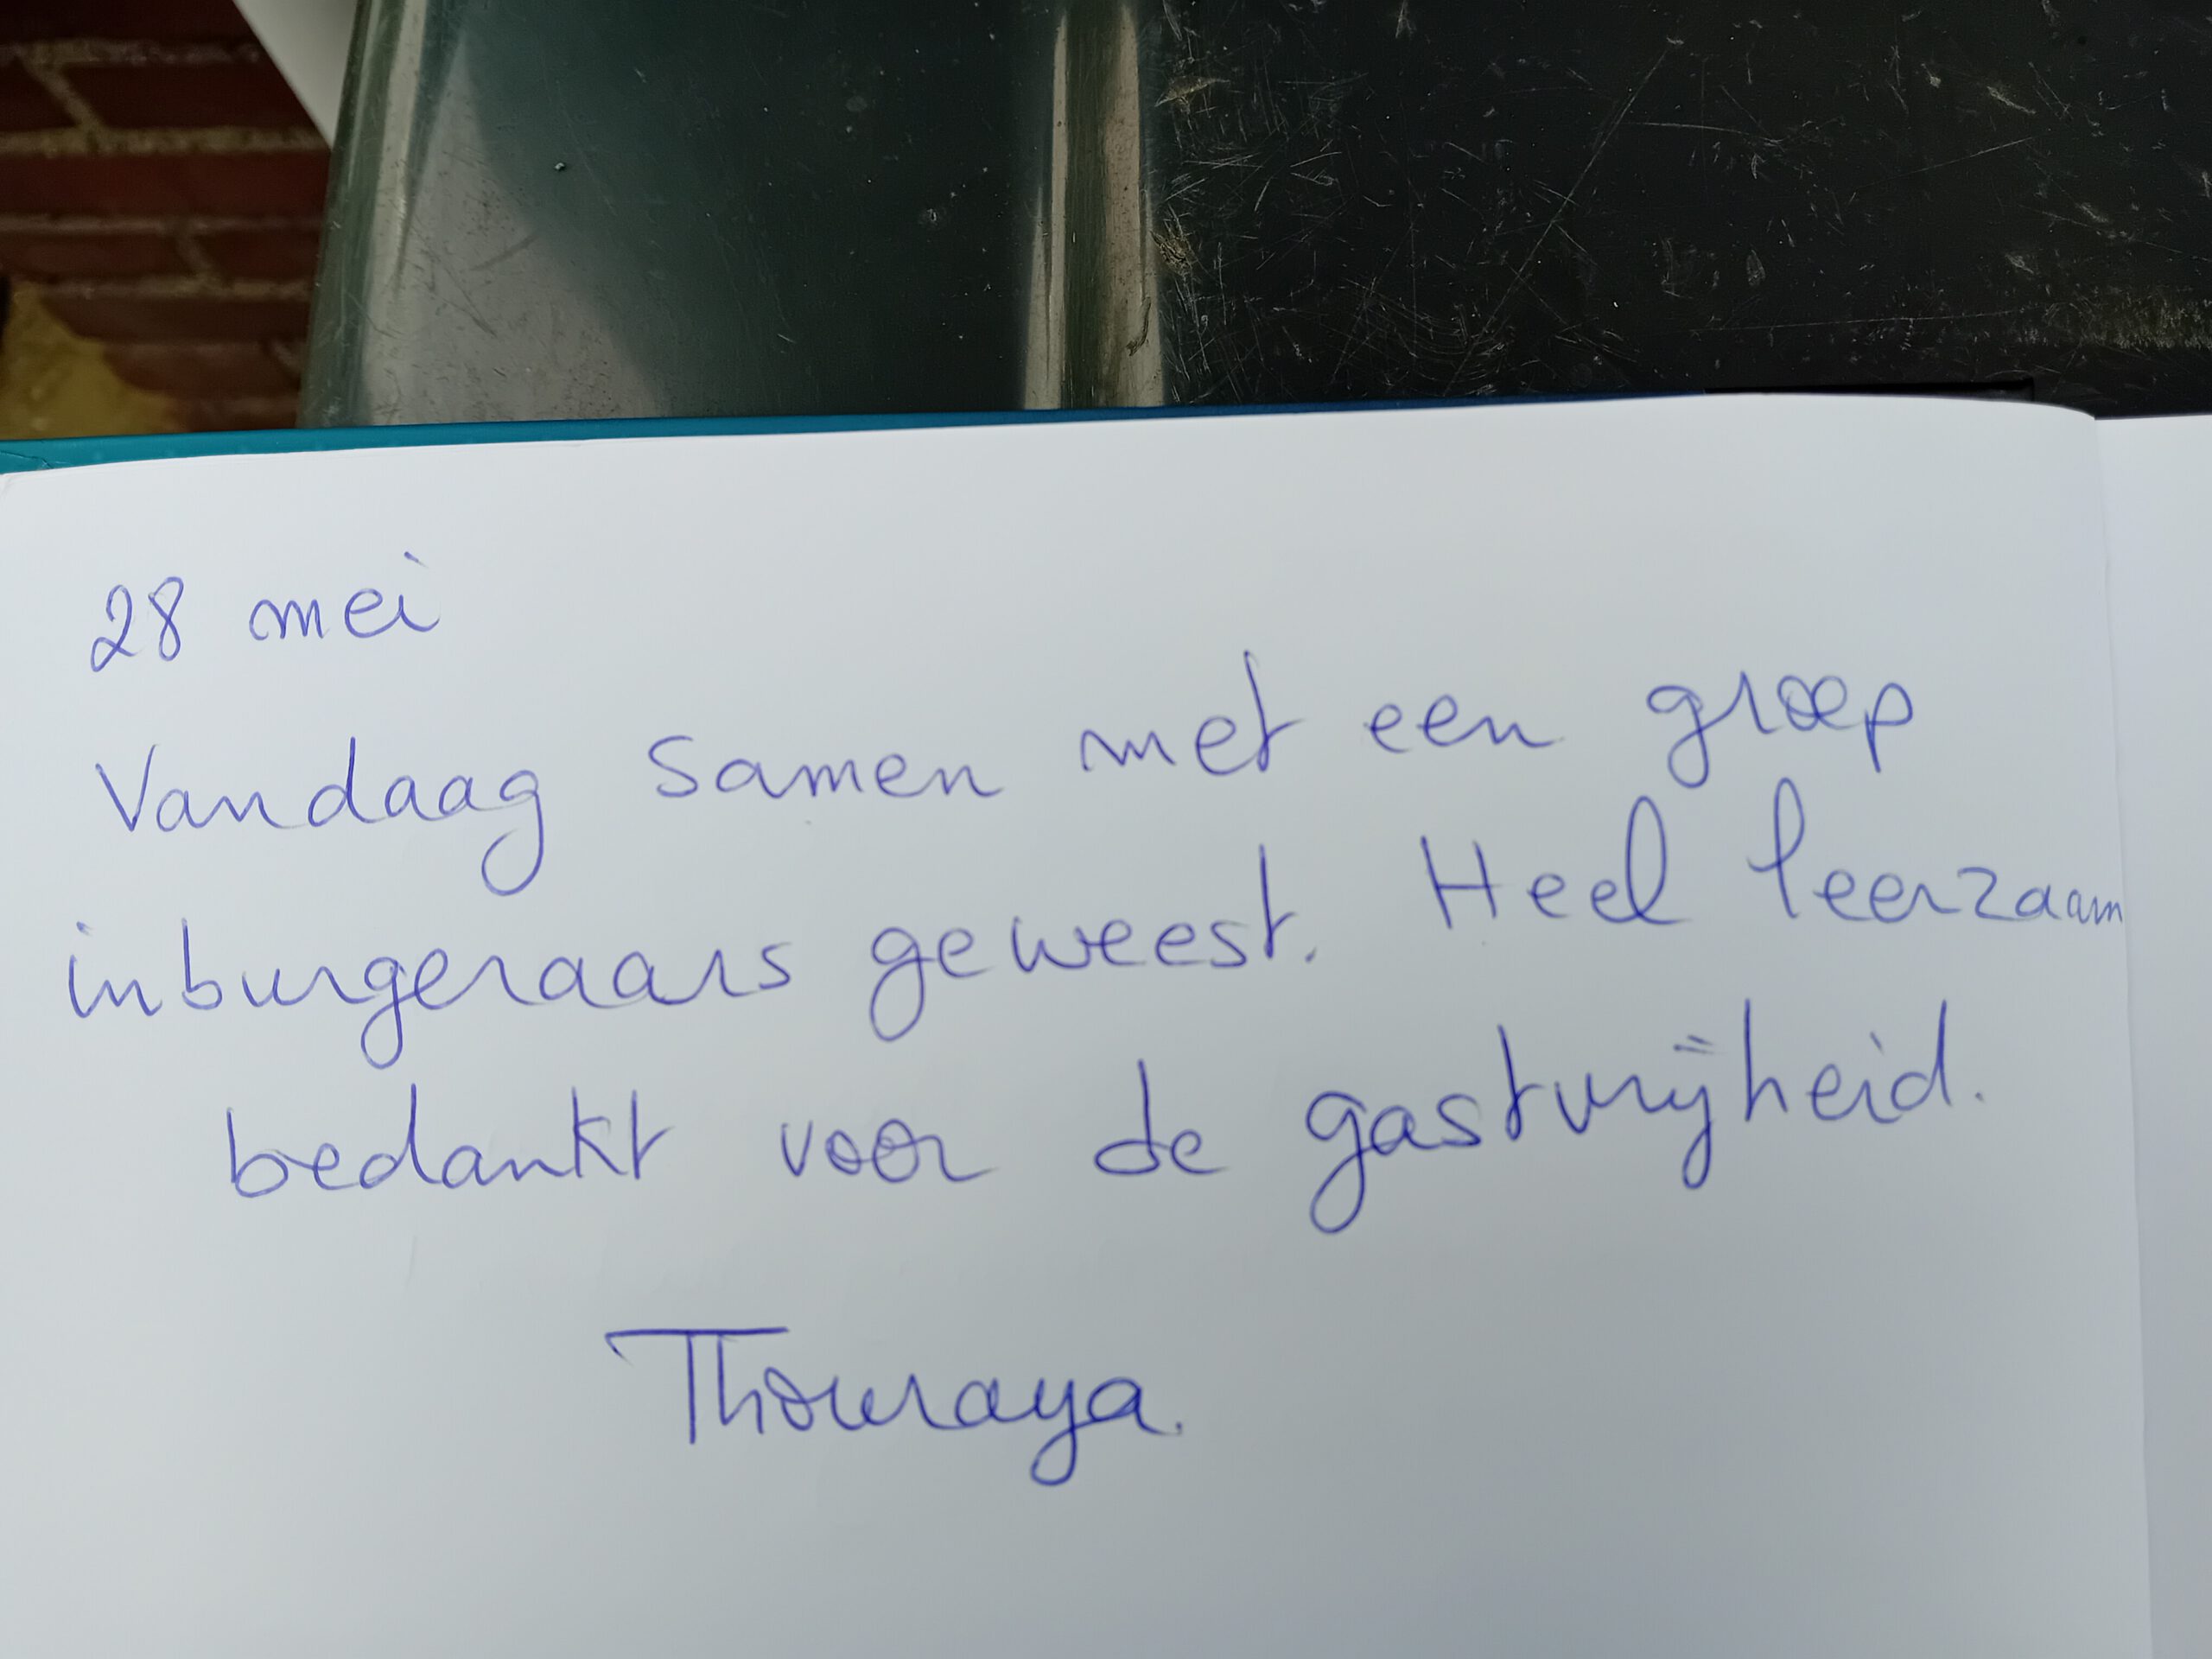 28 mei
Vandaag samen met een groep
inburgeraars geweest. Heel leerzaam
bedankt voor de gastvrijheid.
Thouraya.